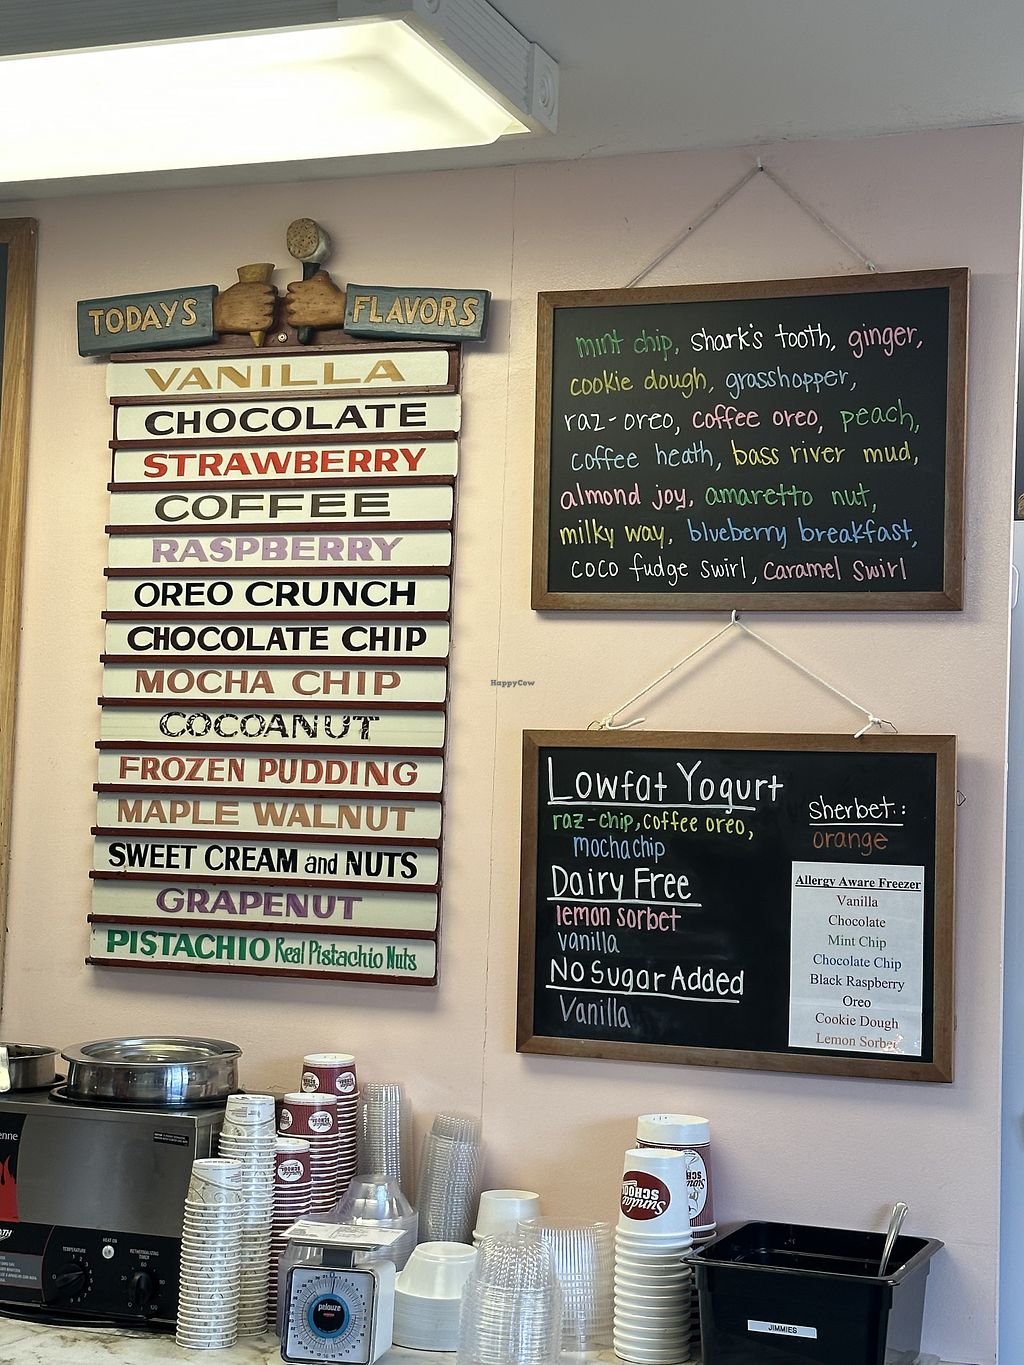 TODAYS FLAVORS
VANILLA
CHOCOLATE
STRAWBERRY
COFFEE
RASPBERRY
OREO CRUNCH
CHOCOLATE CHIP
MOCHA CHIP
COCOANUT
FROZEN PUDDING
MAPLE WALNUT
SWEET CREAM and NUTS
GRAPENUT
PISTACHIO Real Pistachio Nuts
mint chip, shark's tooth, ginger,
cookie dough, grasshopper,
raz-oreo, coffee oreo, peach,
coffee heath, bass river mud,
almond joy, amaretto nut,
milky way, blueberry breakfast,
coco fudge swirl, caramel swirl
HappyCow
Lowfat Yogurt
raz-chip, coffee oreo,
mocha chip
Dairy Free
lemon sorbet
vanilla
No Sugar Added
Vanilla
Sherbet:
orange
Allergy Aware Freezer
Vanilla
Chocolate
Mint Chip
Chocolate Chip
Black Raspberry
Oreo
Cookie Dough
Lemon Sorbet
TEMPERATURE
HEAT ON
RETHERMALIZING
pelouze
Sundae
SCHOOL
JIMMIES